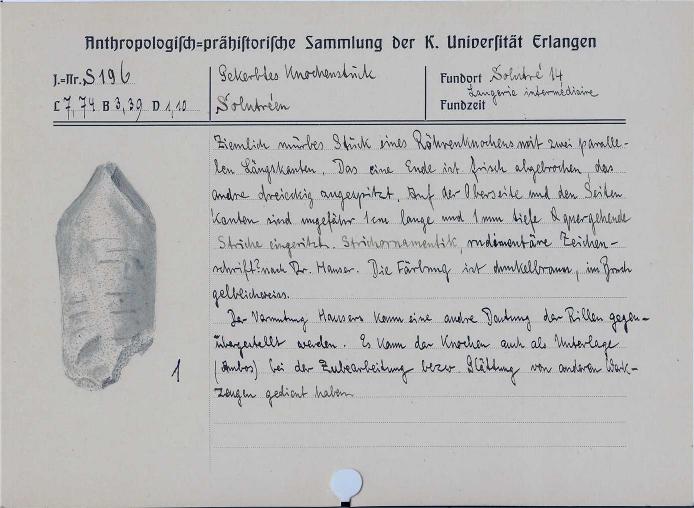 Anthropologisch=prähistorische Sammlung der K. Universität Erlangen
J.=Nr. S 196
L 7,74 B 3,39 D 1,10
Gekerbtes Knochenstück
Solutréen
Fundort Solutré 14
Laugerie intermédiaire
Fundzeit
Ziemlich mürbes Stück eines Röhrenknochens mit zwei paralle-
len Längskanten. Das eine Ende ist frisch abgebrochen, das
andre dreieckig zugespitzt. Auf der Oberseite und den Seiten
kanten sind ungefähr 1 cm lange und 1 mm tiefe quergehende
Striche eingeritzt. Strichornamentik, rudimentäre Zeichen-
schrift? nach Dr. Hauser. Die Färbung ist dunkelbraun, im Bruch
gelblichweiss.
Der Vermutung Hausers kann eine andre Deutung der Rillen gegen-
übergestellt werden. Es kann der Knochen auch als Unterlage
(Ambos) bei der Zubearbeitung bezw. Glättung von anderen Werk-
zeugen gedient haben.
1